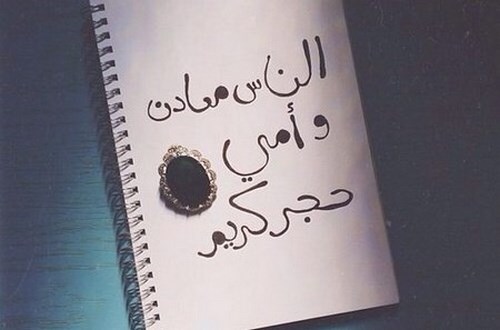 الناس معادن
و أمي
حجر كريم